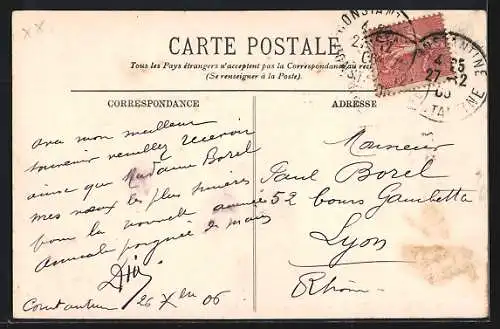 CARTE POSTALE
Tous les Pays étrangers n'acceptent pas la Correspondance au rec
(Se renseigner à la Poste).
CONSTANTINE
CONSTANTINE
4 35
27 -12
05
CORRESPONDANCE
Avec mon meilleur
souvenir veuillez recevoir
ainsi que Madame Borel
mes vœux les plus sincères
pour la nouvelle année
Amicale poignée de mains
Constantine 26 Xbre 06
ADRESSE
Monsieur
Paul Borel
52 cours Gambetta
Lyon
Rhône